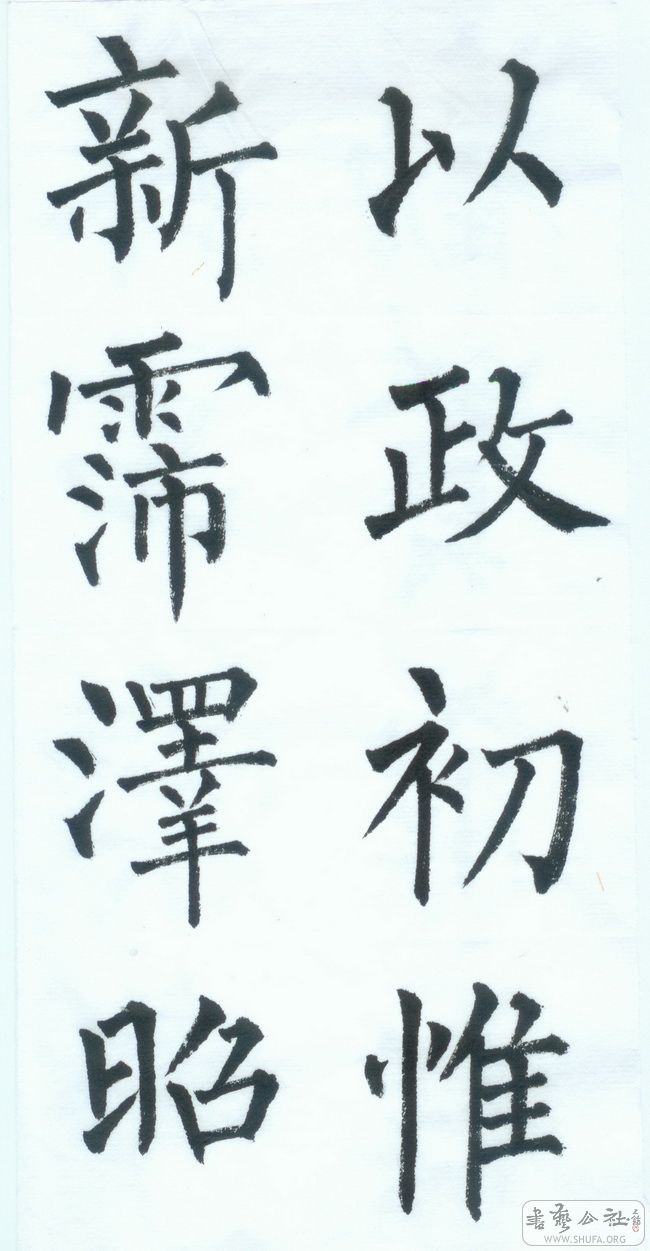 以政初惟
新霈澤昭
書藝公社
WWW.SHUFA.ORG